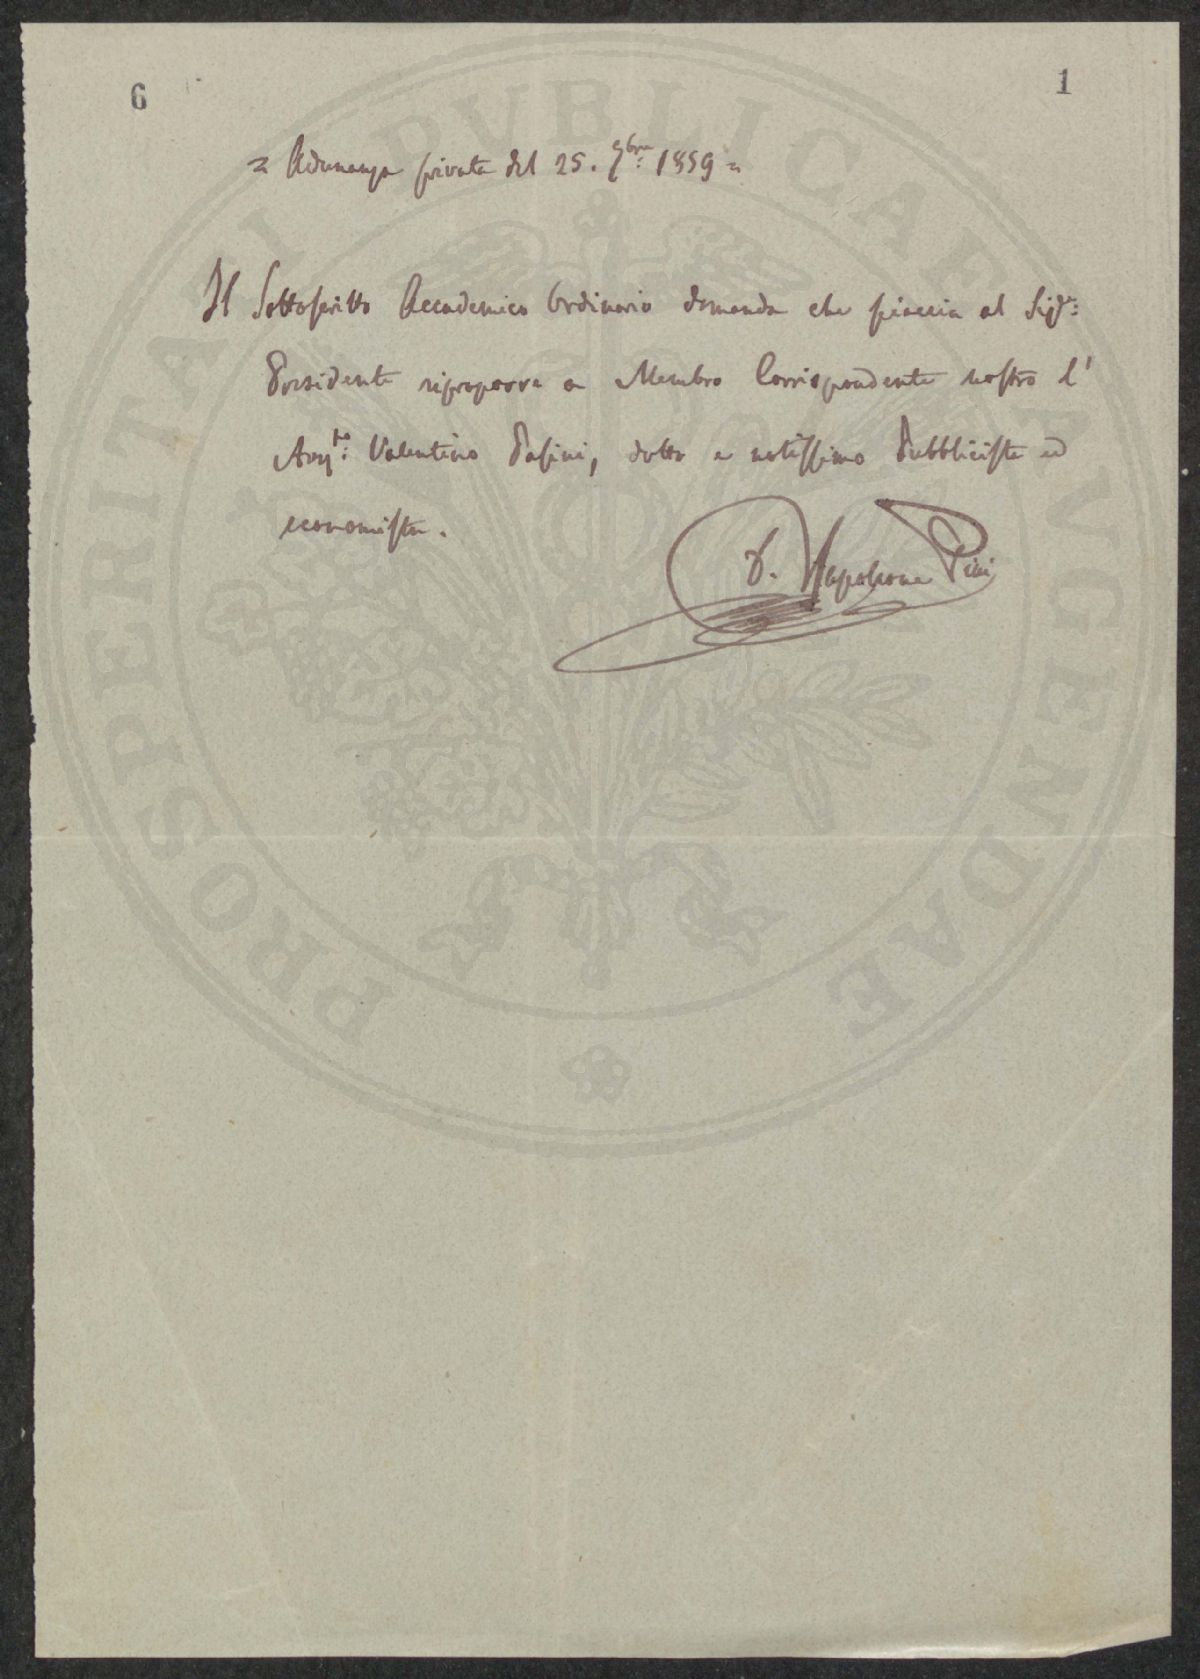 6
1
= Adunanza privata del 25. 7bre: 1859 =
Il Sottoscritto Accademico Ordinario domanda che piaccia al Sigr:
Presidente riproporre a Membro Corrispondente nostro l'
Avvto: Valentino Pasini, dotto e notissimo Pubblicista ed
economista.
D. Napoleone Pini
PROSPERITATI PVBLICAE AVGENDAE